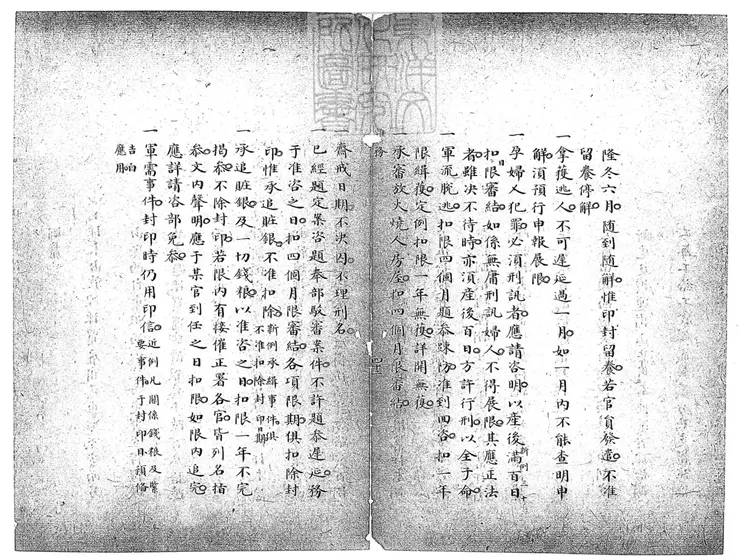 隆冬六月随到随解惟印封留養若官員發遣不准
留養停解
一拿獲逃人不可遲延過一月如一月內不能查明申
解須預行申報展限
一孕婦人犯罪必須刑訊者應請咨明以産後滿百日
扣限審結如係無庸刑訊婦人不得展限其應正法
者雖決不待時亦須産後百日方許行刑以全子命
一軍流脫逃扣限四個月題叅疎防准到四咨扣一年
限緝獲定例扣限一年無獲詳開無獲
一承審放火燒人房屋扣四個月限審結
一齋戒日期不決囚不理刑名
一已經題定案咨題奉部駁審案件不許題叅遲延務
于准咨之日扣四個月限審結各項限期俱扣除封
印惟承追賍銀不准扣除新例承緝事件俱不准扣除封印日期
一承追賍銀及一切錢粮以准咨之日扣限一年不完
揭叅不除封印若限內有接催正署各官皆列名揭
叅文內聲明應于某官到任之日扣限如限內追完
應詳請咨部免叅
一軍需事件封印時仍用印信近例凡關係錢粮及緊要事件于封印日預俻
吉白
應用
東洋文化研究所圖書